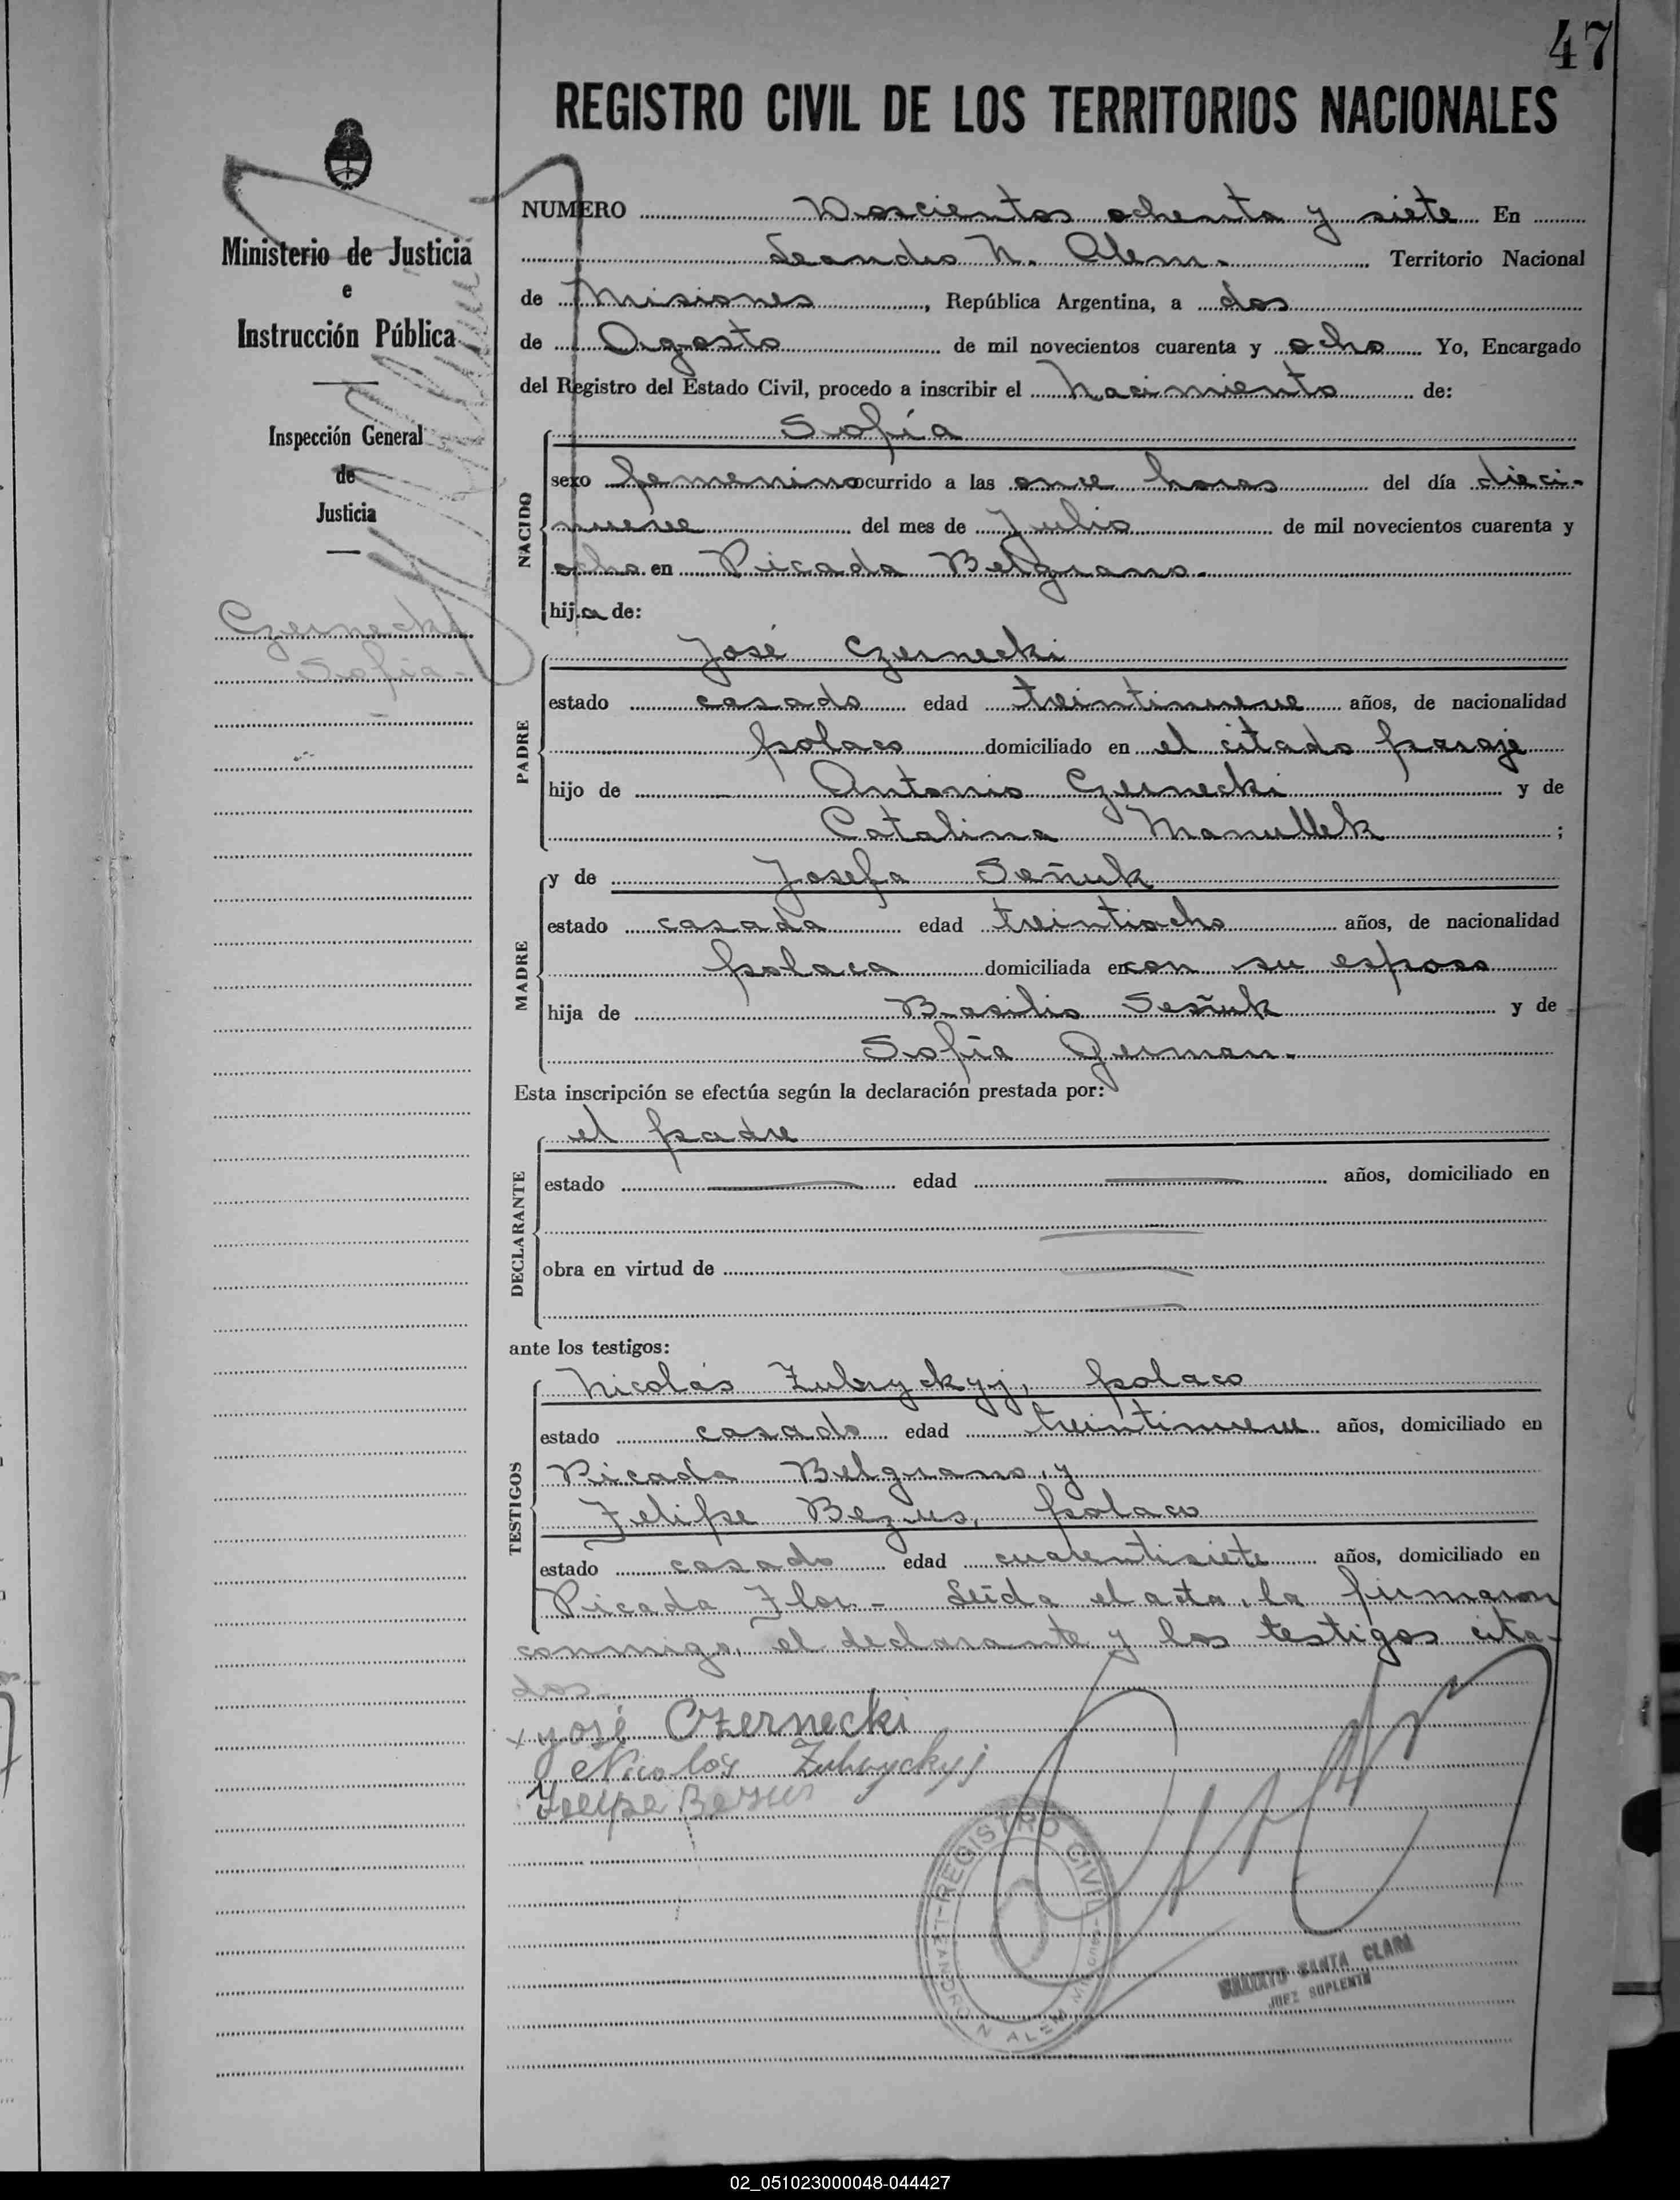 47
REGISTRO CIVIL DE LOS TERRITORIOS NACIONALES
Ministerio de Justicia
e
Instrucción Pública
Inspección General
de
Justicia
Czernecki
Sofía-
NUMERO Doscientos ochenta y siete En
Leandro N. Alem. Territorio Nacional
de Misiones, República Argentina, a dos
de Agosto de mil novecientos cuarenta y ocho Yo, Encargado
del Registro del Estado Civil, procedo a inscribir el nacimiento de:
NACIDO
Sofía
sexo femenino ocurrido a las once horas del día dieci-
nueve del mes de Julio de mil novecientos cuarenta y
ocho en Picada Belgrano.
hija de:
PADRE
José Czernecki
estado casado edad treintinueve años, de nacionalidad
polaco domiciliado en el citado paraje
hijo de Antonio Czernecki y de
Catalina Manullek ;
MADRE
y de Josefa Señuk
estado casada edad treintiocho años, de nacionalidad
polaca domiciliada en con su esposo
hija de Basilio Señuk y de
Sofía German.
Esta inscripción se efectúa según la declaración prestada por:
DECLARANTE
el padre
estado edad años, domiciliado en
obra en virtud de
ante los testigos:
TESTIGOS
Nicolás Zubryckyj, polaco
estado casado edad treintinueve años, domiciliado en
Picada Belgrano, y
Felipe Bezus, polaco
estado casado edad cuarentisiete años, domiciliado en
Picada Flor.- Leída el acta, la firmaron
conmigo, el declarante y los testigos cita-
dos.
x José Czernecki
Nicolás Zubryckyj
Felipe Bezus
REGISTRO CIVIL
LEANDRO N. ALEM
SANTA CLARA
JUEZ SUPLENTE
02_051023000048-044427